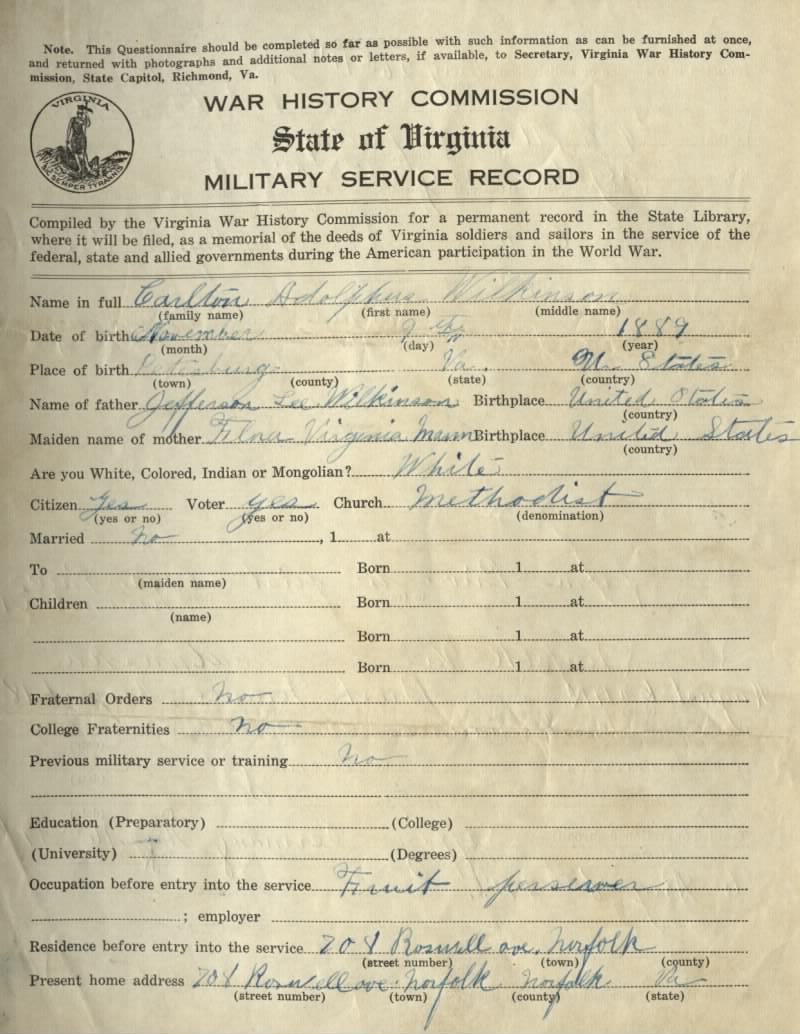 Note. This Questionnaire should be completed so far as possible with such information as can be furnished at once,
and returned with photographs and additional notes or letters, if available, to Secretary, Virginia War History Com-
mission, State Capitol, Richmond, Va.
VIRGINIA
SIC SEMPER TYRANNIS
WAR HISTORY COMMISSION
State of Virginia
MILITARY SERVICE RECORD
Compiled by the Virginia War History Commission for a permanent record in the State Library,
where it will be filed, as a memorial of the deeds of Virginia soldiers and sailors in the service of the
federal, state and allied governments during the American participation in the World War.
Name in full Carlton Adolphus Wilkinson
(family name) (first name) (middle name)
Date of birth November 1889
(month) (day) (year)
Place of birth Petersburg Va. U. States
(town) (county) (state) (country)
Name of father Jefferson Lee Wilkinson Birthplace United States
(country)
Maiden name of mother Virginia Mann Birthplace United States
(country)
Are you White, Colored, Indian or Mongolian? White
Citizen Yes Voter yes Church Methodist
(yes or no) (yes or no) (denomination)
Married no , 1 at
To Born 1 at
(maiden name)
Children Born 1 at
(name)
Born 1 at
Born 1 at
Fraternal Orders no
College Fraternities no
Previous military service or training no
Education (Preparatory) (College)
(University) (Degrees)
Occupation before entry into the service Fruit perserver
; employer
Residence before entry into the service 208 Roswell ave. Norfolk
(street number) (town) (county)
Present home address 208 Roswell ave. Norfolk Norfolk Va
(street number) (town) (county) (state)